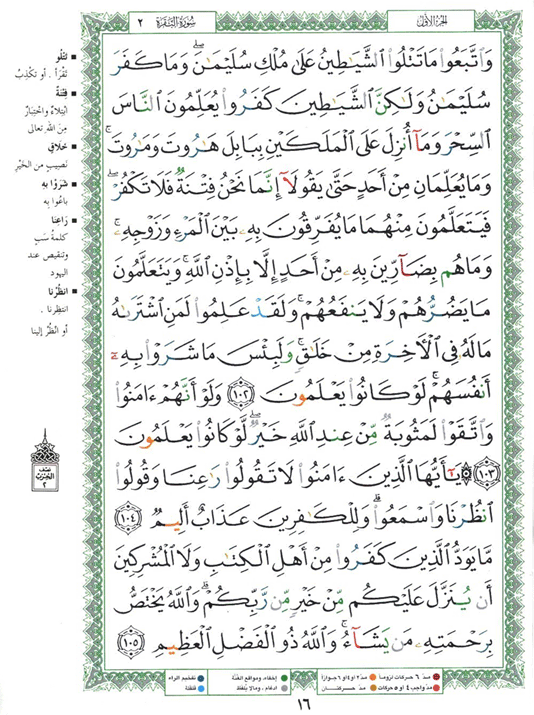 الجزء الأول
سُورَةُ البَقَرَة ٢
وَاتَّبَعُوا مَا تَتْلُوا الشَّيَاطِينُ عَلَىٰ مُلْكِ سُلَيْمَٰنَ ۖ وَمَا كَفَرَ
سُلَيْمَٰنُ وَلَٰكِنَّ الشَّيَاطِينَ كَفَرُوا يُعَلِّمُونَ النَّاسَ
السِّحْرَ وَمَا أُنزِلَ عَلَى الْمَلَكَيْنِ بِبَابِلَ هَٰرُوتَ وَمَٰرُوتَ ۚ
وَمَا يُعَلِّمَانِ مِنْ أَحَدٍ حَتَّىٰ يَقُولَا إِنَّمَا نَحْنُ فِتْنَةٌ فَلَا تَكْفُرْ ۖ
فَيَتَعَلَّمُونَ مِنْهُمَا مَا يُفَرِّقُونَ بِهِۦ بَيْنَ الْمَرْءِ وَزَوْجِهِۦ ۚ
وَمَا هُم بِضَآرِّينَ بِهِۦ مِنْ أَحَدٍ إِلَّا بِإِذْنِ اللَّهِ ۚ وَيَتَعَلَّمُونَ
مَا يَضُرُّهُمْ وَلَا يَنفَعُهُمْ ۚ وَلَقَدْ عَلِمُوا لَمَنِ اشْتَرَىٰهُ
مَا لَهُ فِي الْآخِرَةِ مِنْ خَلَٰقٍ ۚ وَلَبِئْسَ مَا شَرَوْا بِهِۦٓ
أَنفُسَهُمْ ۚ لَوْ كَانُوا يَعْلَمُونَ ١٠٢ وَلَوْ أَنَّهُمْ ءَامَنُوا
وَاتَّقَوْا لَمَثُوبَةٌ مِّنْ عِندِ اللَّهِ خَيْرٌ ۖ لَّوْ كَانُوا يَعْلَمُونَ
١٠٣ ۞ يَٰٓأَيُّهَا الَّذِينَ ءَامَنُوا لَا تَقُولُوا رَٰعِنَا وَقُولُوا
انظُرْنَا وَاسْمَعُوا ۗ وَلِلْكَٰفِرِينَ عَذَابٌ أَلِيمٌ ١٠٤
مَّا يَوَدُّ الَّذِينَ كَفَرُوا مِنْ أَهْلِ الْكِتَٰبِ وَلَا الْمُشْرِكِينَ
أَن يُنَزَّلَ عَلَيْكُم مِّنْ خَيْرٍ مِّن رَّبِّكُمْ ۗ وَاللَّهُ يَخْتَصُّ
بِرَحْمَتِهِۦ مَن يَشَآءُ ۚ وَاللَّهُ ذُو الْفَضْلِ الْعَظِيمِ ١٠٥
تَتْلُو
تَقْرَأُ . أو تكْذِبُ
فِتْنَةٌ
ابْتِلاءٌ واخْتِبَارٌ
مِنَ اللهِ تعالى
خَلَاقٍ
نَصِيبٍ من الخَيْرِ
شَرَوْا بِهِ
باعُوا بِهِ
رَاعِنَا
كلمةُ سَبٍّ
وتنقيصٍ عند
اليهود
انظُرْنا
انتظِرنا .
أو انظُرْ إلينا
نصف
الحزب
٢
مدّ ٦ حركات لزوماً
مدّ ٢ او ٤ او ٦ جوازاً
مدّ واجب ٤ او ٥ حركات
مدّ حركتان
إخفاء، ومواقع الغُنَّة
ادغام، وما لا يُلفظ
تفخيم الراء
قلقلة
١٦